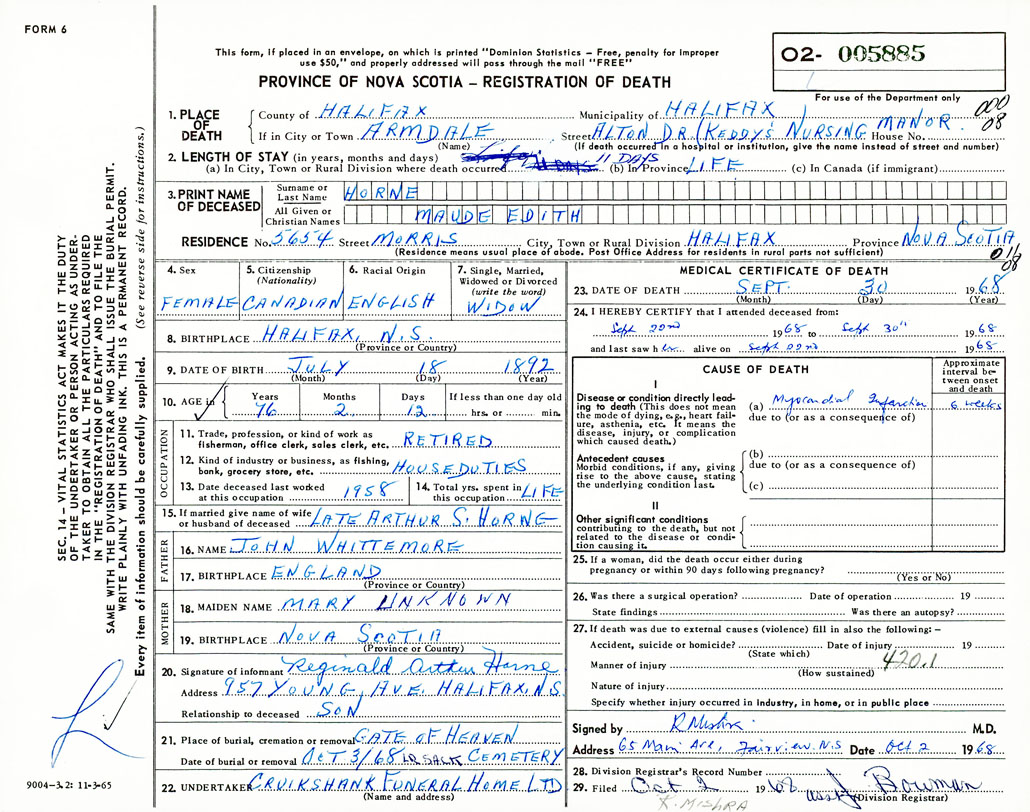 FORM 6
This form, if placed in an envelope, on which is printed "Dominion Statistics – Free, penalty for improper
use $50," and properly addressed will pass through the mail "FREE"
PROVINCE OF NOVA SCOTIA – REGISTRATION OF DEATH
02- 005885
For use of the Department only
000
08
1. PLACE OF DEATH
County of HALIFAX Municipality of HALIFAX
If in City or Town ARMDALE Street ALTON DR. (KEDDY'S NURSING MANOR. House No.
(Name) (If death occurred in a hospital or institution, give the name instead of street and number)
2. LENGTH OF STAY (in years, months and days)
(a) In City, Town or Rural Division where death occurred 11 DAYS (b) In Province LIFE (c) In Canada (if immigrant)
3. PRINT NAME OF DECEASED
Surname or Last Name HORNE
All Given or Christian Names MAUDE EDITH
RESIDENCE No. 5654 Street MORRIS City, Town or Rural Division HALIFAX Province NOVA SCOTIA
(Residence means usual place of abode. Post Office Address for residents in rural parts not sufficient)
08
4. Sex
FEMALE
5. Citizenship (Nationality)
CANADIAN
6. Racial Origin
ENGLISH
7. Single, Married, Widowed or Divorced (write the word)
WIDOW
8. BIRTHPLACE HALIFAX, N.S.
(Province or Country)
9. DATE OF BIRTH JULY 18 1892
(Month) (Day) (Year)
10. AGE in Years Months Days If less than one day old
76 2 12 hrs. or min.
OCCUPATION
11. Trade, profession, or kind of work as
fisherman, office clerk, sales clerk, etc. RETIRED
12. Kind of industry or business, as fishing,
bank, grocery store, etc. HOUSEDUTIES
13. Date deceased last worked
at this occupation 1958
14. Total yrs. spent in
this occupation LIFE
15. If married give name of wife
or husband of deceased LATE ARTHUR S. HORNE
FATHER
16. NAME JOHN WHITTEMORE
17. BIRTHPLACE ENGLAND
(Province or Country)
MOTHER
18. MAIDEN NAME MARY UNKNOWN
19. BIRTHPLACE NOVA SCOTIA
(Province or Country)
20. Signature of informant Reginald Arthur Horne
Address 957 YOUNG AVE. HALIFAX, N.S.
Relationship to deceased SON
21. Place of burial, cremation or removal GATE OF HEAVEN
Date of burial or removal OCT 3/68 LR SACK CEMETERY
22. UNDERTAKER CRUIKSHANK FUNERAL HOME LTD
(Name and address)
MEDICAL CERTIFICATE OF DEATH
23. DATE OF DEATH SEPT. 30 1968
(Month) (Day) (Year)
24. I HEREBY CERTIFY that I attended deceased from:
Sept 22nd 1968 to Sept 30th 1968
and last saw her alive on Sept 22nd 1968
CAUSE OF DEATH
Approximate interval between onset and death
I
Disease or condition directly leading to death (This does not mean the mode of dying, e.g., heart failure, asthenia, etc. It means the disease, injury, or complication which caused death.)
(a) Myocardial Infarction 6 weeks
due to (or as a consequence of)
Antecedent causes
Morbid conditions, if any, giving rise to the above cause, stating the underlying condition last.
(b)
due to (or as a consequence of)
(c)
II
Other significant conditions
contributing to the death, but not related to the disease or condition causing it.
25. If a woman, did the death occur either during
pregnancy or within 90 days following pregnancy?
(Yes or No)
26. Was there a surgical operation? Date of operation 19
State findings Was there an autopsy?
27. If death was due to external causes (violence) fill in also the following: –
Accident, suicide or homicide? Date of injury 19
(State which)
Manner of injury 420.1
(How sustained)
Nature of injury
Specify whether injury occurred in industry, in home, or in public place
Signed by R Mishra M.D.
Address 65 Main Ave, Fairview N.S. Date Oct 2 1968
28. Division Registrar's Record Number
29. Filed Oct 2 1968 Asst J Bowman
(Division Registrar)
K. MISHRA
SEC. 14 – VITAL STATISTICS ACT MAKES IT THE DUTY
OF THE UNDERTAKER OR PERSON ACTING AS UNDER-
TAKER TO OBTAIN ALL THE PARTICULARS REQUIRED
IN THE "REGISTRATION OF DEATH" AND TO FILE THE
SAME WITH THE DIVISION REGISTRAR WHO SHALL ISSUE THE BURIAL PERMIT.
WRITE PLAINLY WITH UNFADING INK. THIS IS A PERMANENT RECORD.
Every item of information should be carefully supplied. (See reverse side for instructions.)
9004-3.2: 11-3-65